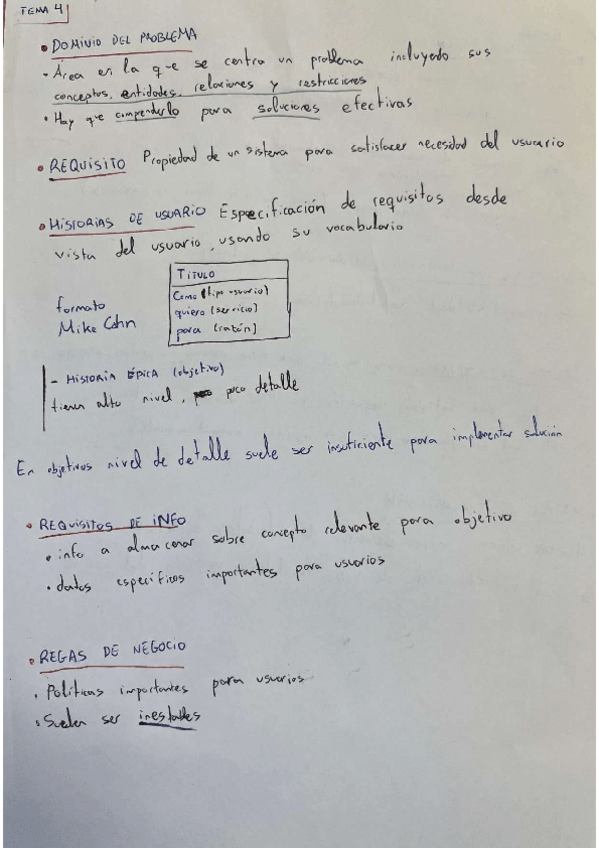 TEMA 4
• DOMINIO DEL PROBLEMA
• Área en la que se centra un problema incluyedo sus
conceptos, entidades, relaciones y restricciones
• Hay que comprenderlo para soluciones efectivas
• REQUISITO Propiedad de un sistema para satisfacer necesidad del usuario
• HISTORIAS DE USUARIO Especificación de requisitos desde
vista del usuario, usando su vocabulario
formato
Mike Cohn
TITULO
Como (tipo usuario)
quiero (servicio)
para (razón)
- HISTORIA ÉPICA (objetivo)
tienen alto nivel, poco detalle
En objetivos nivel de detalle suele ser insuficiente para implementar solución
• REQUISITOS DE INFO
• info a almacenar sobre concepto relevante para objetivo
• datos específicos importantes para usuarios
• REGAS DE NEGOCIO
• Políticas importantes para usuarios
• Suelen ser inestables